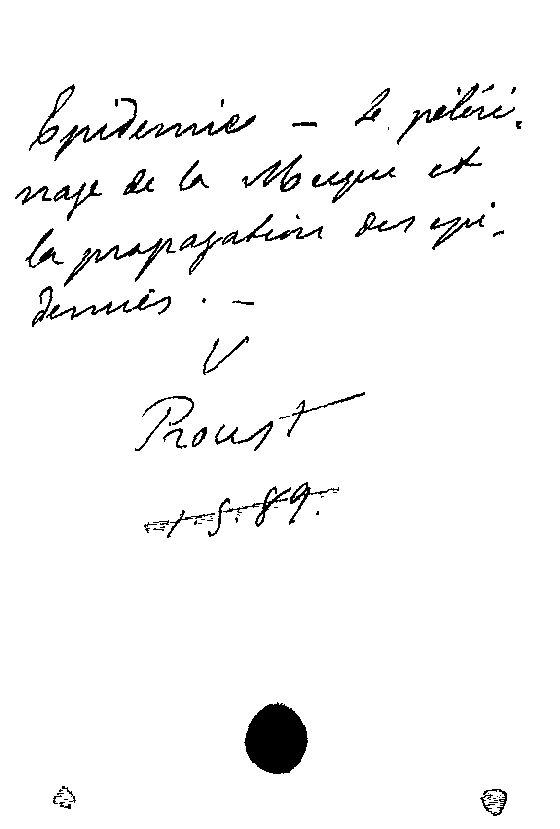 Epidemies — Le péleri-
nage de la Mecque et
la propagation des epi-
demies. —
V
Proust
1 S. 89.